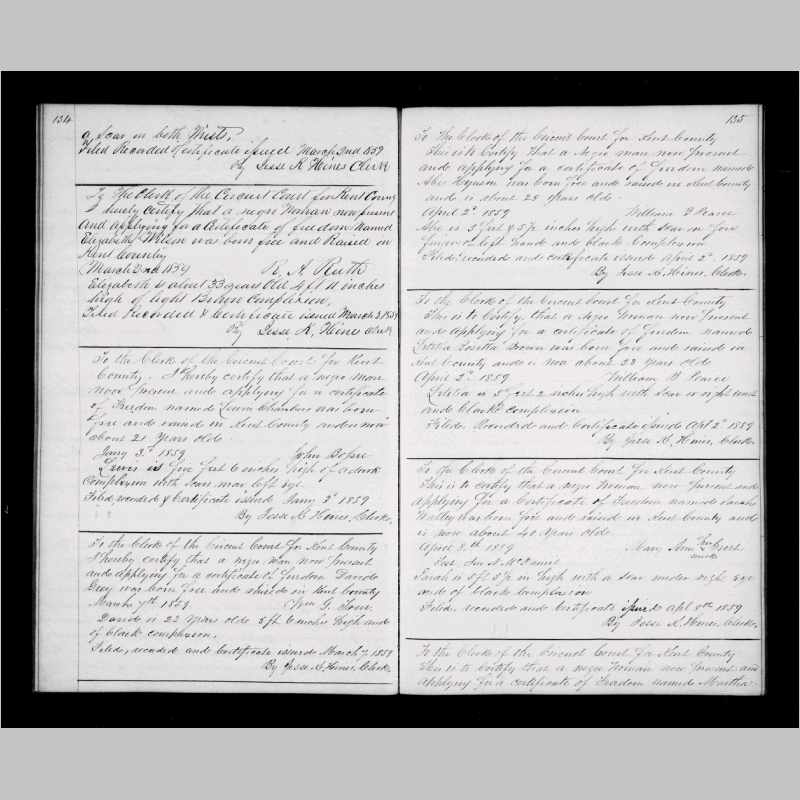 134
a Scar in both Wrists,
Filed Recorded & Certificate issued March 2nd 1859
By Jesse K. Hines Clerk
To The Clerk of the Circuit Court for Kent County
I hereby certify that a negro Woman now present
and applying for a Certificate of freedom Named
Elizabeth Wilson was born free and Raised in
Kent County
March 2nd 1859 R. A. Ruth
Elizabeth is about 33 years Old 4 ft 11 inches
high of light Brown Complexion,
Filed Recorded & Certificate issued March 2 1859
By Jesse K. Hines Clerk
To the Clerk of the Circuit Court for Kent
County. I hereby certify that a negro man
now present and applying for a certificate
of freedom named Lewis Chambers was born
free and raised in Kent County and is now
about 21 Years old
Jany 3d 1859 John
Lewis is five feet 6 inches high of a dark
Complexion with Scar near left eye
Filed, recorded & Certificate issued Jany 3d 1859
By Jesse K. Hines, Clerk.
To the Clerk of the Circuit Court for Kent County
I hereby certify that a negro man now present
and applying for a certificate of freedom David
Grey was born free and raised in Kent County
March 7th 1859 Wm G.
David is 22 years old 5 ft 6 inches high and
of black complexion.
Filed, recorded and Certificate issued March 7, 1859
By Jesse K. Hines, Clerk.
135
To The Clerk of the Circuit Court for Kent County
This is to Certify that a Negro man now present
and applying for a certificate of freedom named
Abe Hynson was born free and raised in Kent County
and is about 25 Years old.
April 2d 1859 William B Pearce
Abe is 5 feet & 5 1/2 inches high with scar on fore
finger on left hand and black Complexion
Filed, recorded and certificate issued April 2d 1859
By Jesse K. Hines, Clerk.
To the Clerk of the Circuit Court for Kent County
This is to Certify, that a Negro Woman now present
and applying for a certificate of freedom named
Letitia Brown was born free and raised in
Kent County and is now about 23 Years old
April 2d 1859 William B Pearce
Letitia is 5 feet 2 inches high with Scar on right
and black complexion
Filed. Recorded and Certificate issued Apl 2d 1859
By Jesse K. Hines, Clerk.
To the Clerk of the Circuit Court for Kent County
This is to certify that a negro woman now present and
applying for a Certificate of Freedom named Sarah
was born free and raised in Kent County and
is now about 40 years old
April 8th 1859 Mary Ann her
mark
Test
Sarah is 5 ft 5 1/2 in high with a scar under right eye
and of black complexion
Filed, recorded and Certificate issued Apl 8th 1859
By Jesse K. Hines, Clerk.
To the Clerk of the Circuit Court for Kent County
This is to Certify that a negro Woman now present and
applying for a certificate of Freedom named Martha